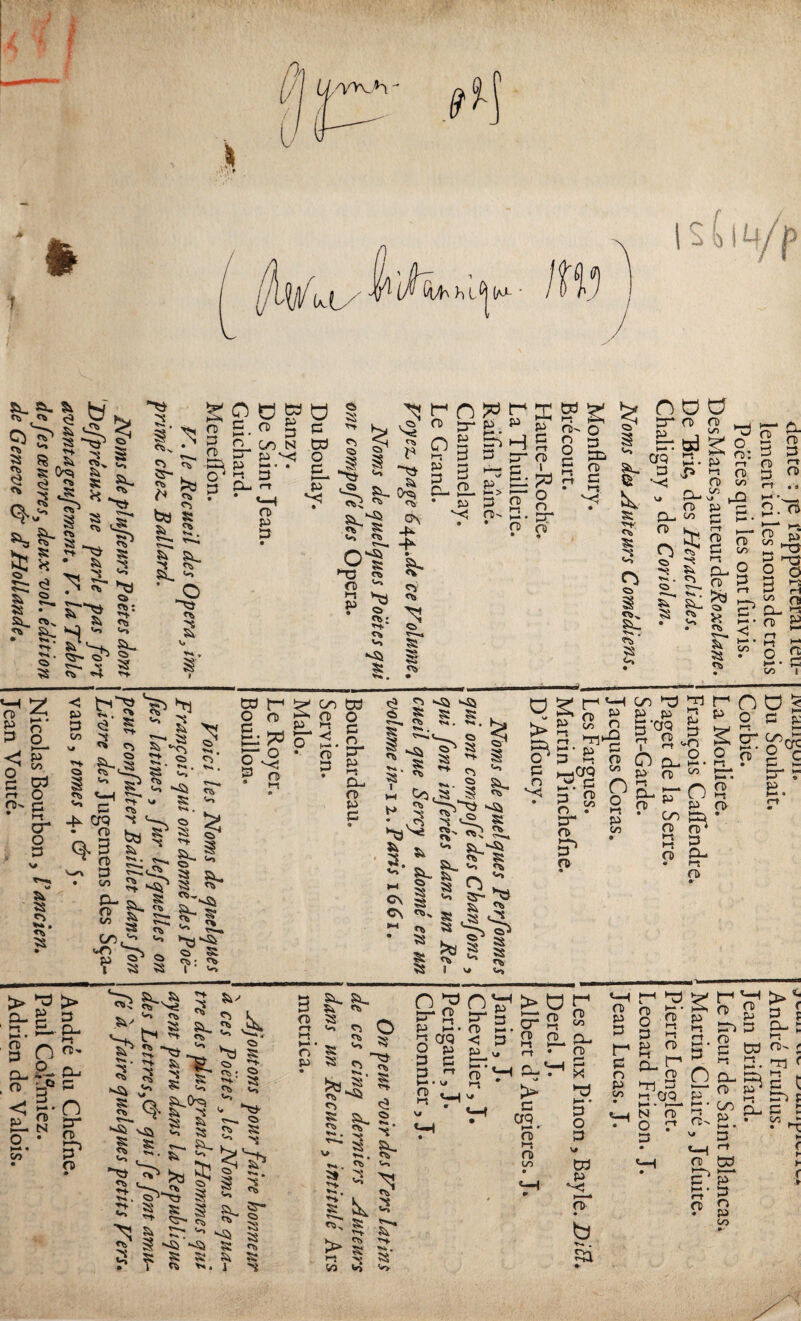 15614/p
(Revue Britannique 1849)
dente : je rapporterai ſeu-
lement ici les noms de trois
Poëtes qui les ont ſuivis.
DesMares, auteur de Roxelane.
De Brie, des Heraclides.
Chaligny, de Coriolan.
Noms des Auteurs Comédiens.
Monfleury.
Brécourt.
Haute-Roche.
La Thuillerie.
Raiſin l'aîné.
Chammelay.
Le Grand.
Voyez page 644. de ce Volume.
Noms de quelques Poëtes qui
ont compoſé des Opera.
Du Boulay.
Banzy.
De Saint Jean.
Guichard.
Meneſſon.
V. le Recueil des Opera, im-
primé chez Ballard.
Noms de pluſieurs Poëtes dont
Deſpréaux ne parle pas fort
avantageuſement. V. la Table
de ſes œuvres, deux vol. édition
de Geneve & d'Hollande.
Du Souhait.
Corbie.
La Morliere.
François Caſſendre.
Paget de la Serre.
Saint-Garde.
Jacques Coras.
Les Fargues.
Martin Pincheſne.
D'Aſſoucy.
Noms de quelques Perſonnes
qui ont compoſé des Chanſons,
qui ſont inſerées dans un Re-
cueil que Sercy a donné en un
volume in-12. Paris 1661.
Bouchardeau.
Servien.
Malo.
Le Royer.
Bouillon.
Voici les Noms de quelques
François qui ont donné des Poë-
ſies latines, ſur leſquelles on
peut conſulter Baillet dans ſon
Livre des Jugemens des Sça-
vans, tomes 4. & 5.
Nicolas Bourbon, l'ancien.
Jean Vouté.
André Fruſius.
Jean Briſſard.
Le ſieur de Saint Blancas.
Martin Clairé, Jeſuite.
Pierre Lenglet.
Leonard Frizon. J.
Jean Lucas. J.
Les deux Pinon, Bayle. Dict.
Derel. J.
Albert d'Augieres. J.
Janin, J.
Chevalier, J.
Perigaut, J.
Charonnier, J.
On peut voir des Vers latins
de ces cinq derniers Auteurs
dans un Recueil, intitulé Ars
metrica.
Ajoutons pour faire honneur
à ces Poëtes, les Noms de qua-
tre des plus grands Hommes qui
ayent paru dans la Republique
des Lettres, & qui ſe ſont amu-
ſé à faire quelques petits Vers.
André du Cheſne.
Paul Colomiez.
Adrien de Valois.